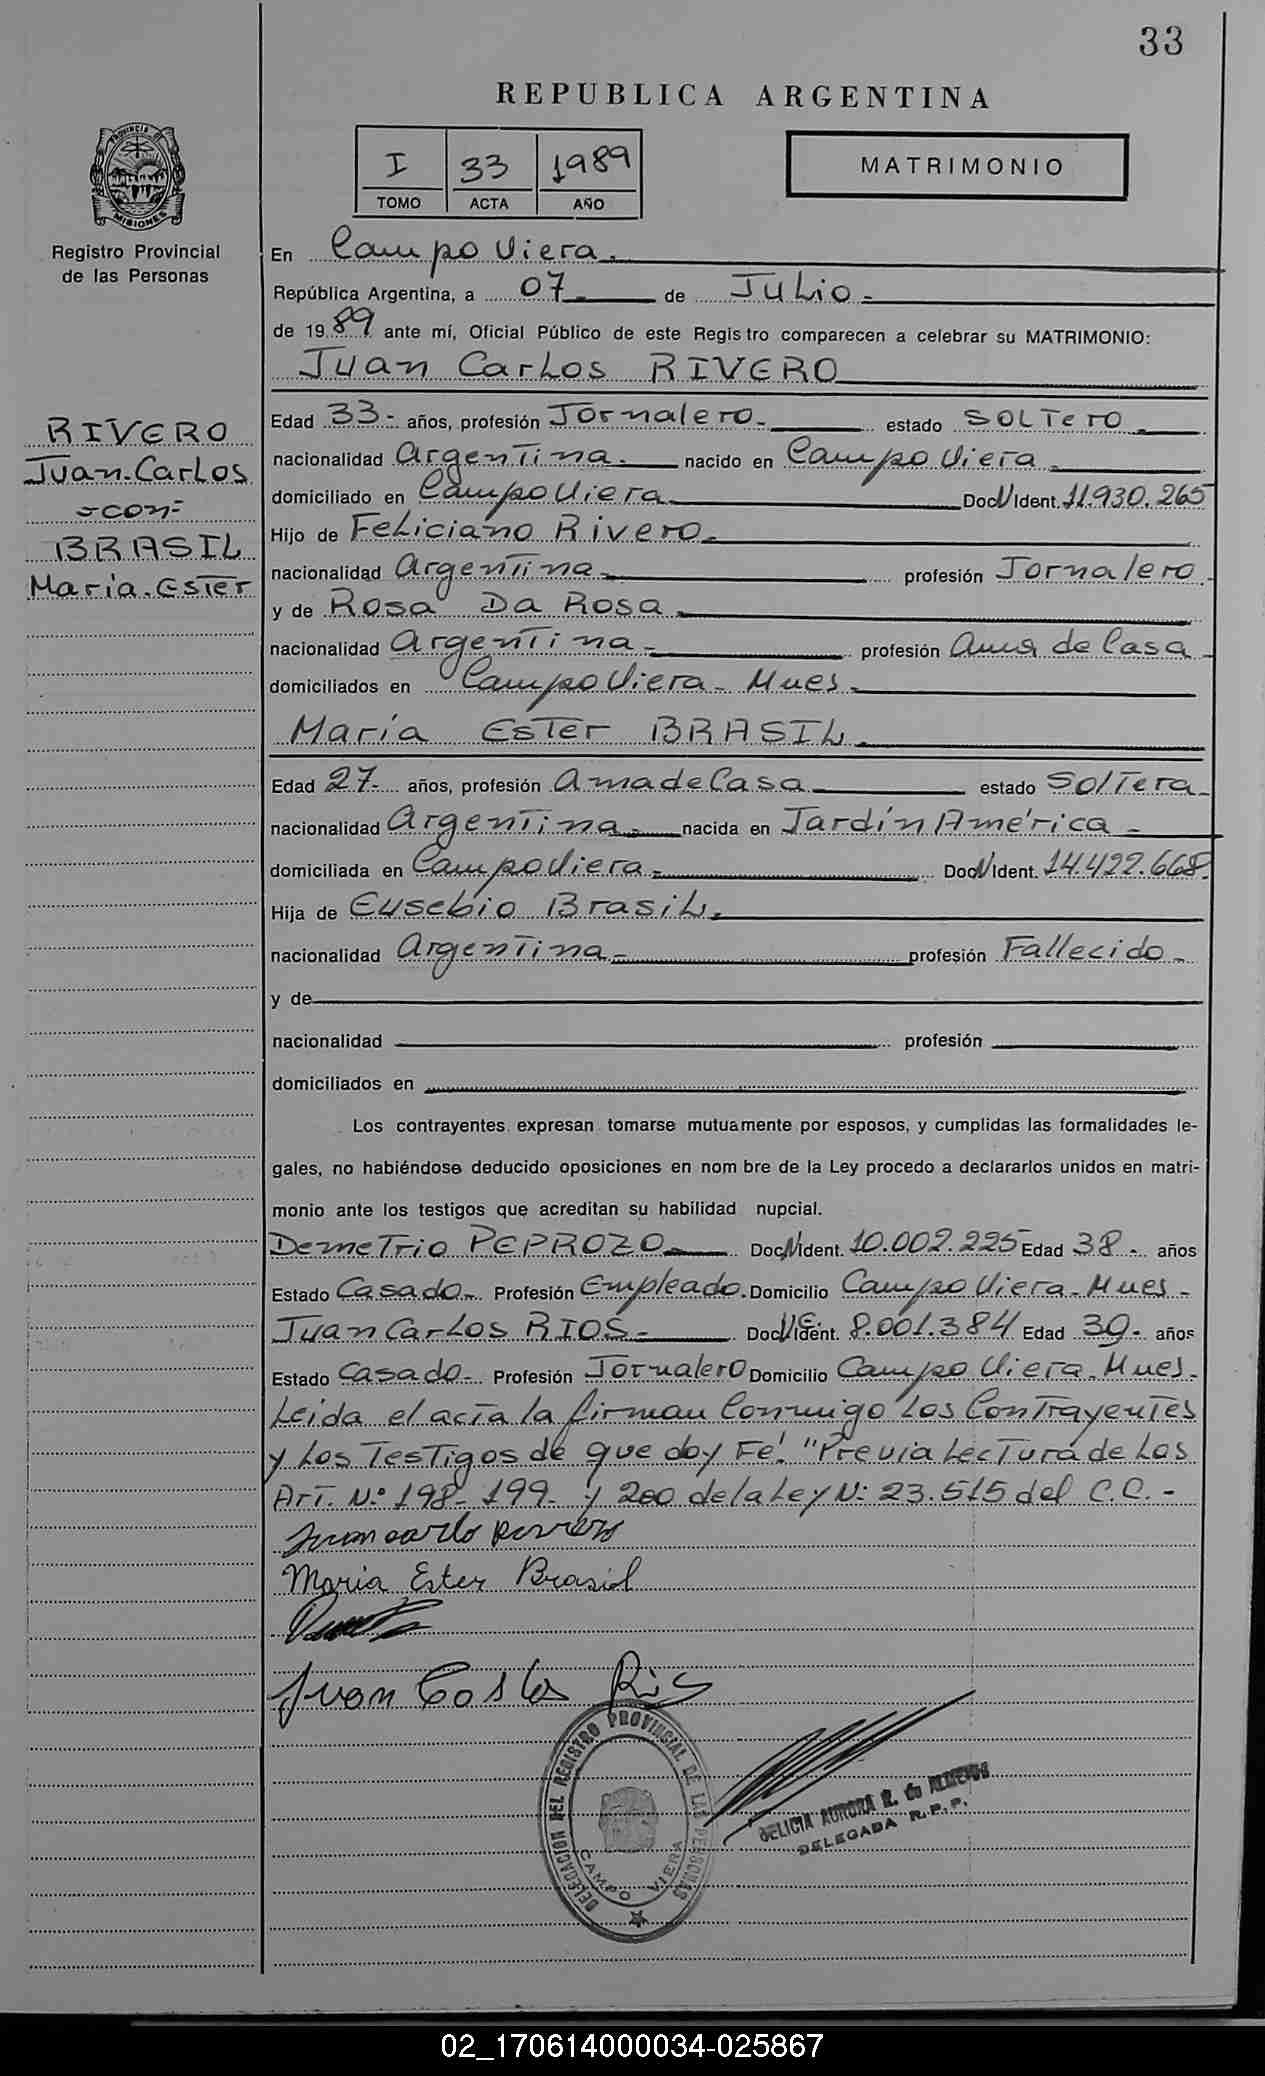 33
REPUBLICA ARGENTINA
PROVINCIA DE
MISIONES
Registro Provincial
de las Personas
I 33 1989
TOMO ACTA AÑO
MATRIMONIO
En Campo Viera.
República Argentina, a 07- de JuLio-
de 1989 ante mí, Oficial Público de este Regis tro comparecen a celebrar su MATRIMONIO:
Juan CarLos RIVERO
RIVERO
Juan.CarLos
-con-
BRASIL
Maria.Ester
Edad 33- años, profesión Jornalero- estado SOLTero-
nacionalidad Argentina- nacido en Campo Viera-
domiciliado en Campo Viera Doc N Ident. 11.930.265
Hijo de FeLiciano Rivero-
nacionalidad Argentina- profesión Jornalero-
y de Rosa Da Rosa-
nacionalidad Argentina- profesión Ama de Casa-
domiciliados en Campo Viera- Mnes-
María Ester BRASIL-
Edad 27- años, profesión Ama de Casa estado Soltera-
nacionalidad Argentina- nacida en Jardín América-
domiciliada en Campo Viera- Doc N Ident. 14.422.668.
Hija de Eusebio BrasiL.
nacionalidad Argentina- profesión Fallecido-
y de
nacionalidad profesión
domiciliados en
Los contrayentes expresan tomarse mutuamente por esposos, y cumplidas las formalidades le-
gales, no habiéndose deducido oposiciones en nom bre de la Ley procedo a declararlos unidos en matri-
monio ante los testigos que acreditan su habilidad nupcial.
Demetrio PEPROZO- Doc N Ident. 10.002.225 Edad 38- años
Estado Casado- Profesión Empleado. Domicilio Campo Viera-Mnes-
Juan CarLos RIOS- Doc Ident. 8.001.384 Edad 39- años
Estado Casado- Profesión Jornalero Domicilio Campo Viera-Mnes-
Leida el acta la firman Conmigo Los Contrayentes
y Los Testigos de que doy Fé. "Previa Lectura de Los
Art. N° 198- 199- y 200 de la Ley N: 23.515 del C.C.-
Juan carlo Rivero
Maria Ester Brasil
Juan Carlos Rios
DELEGACION DEL REGISTRO PROVINCIAL DE LAS PERSONAS
CAMPO VIERA
DELICIA AURORA R. de ALMEIDA
DELEGADA R.P.P.
02_170614000034-025867